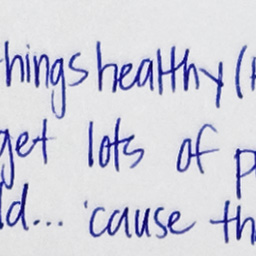 things healthy (
get lots of p
ld... 'cause th